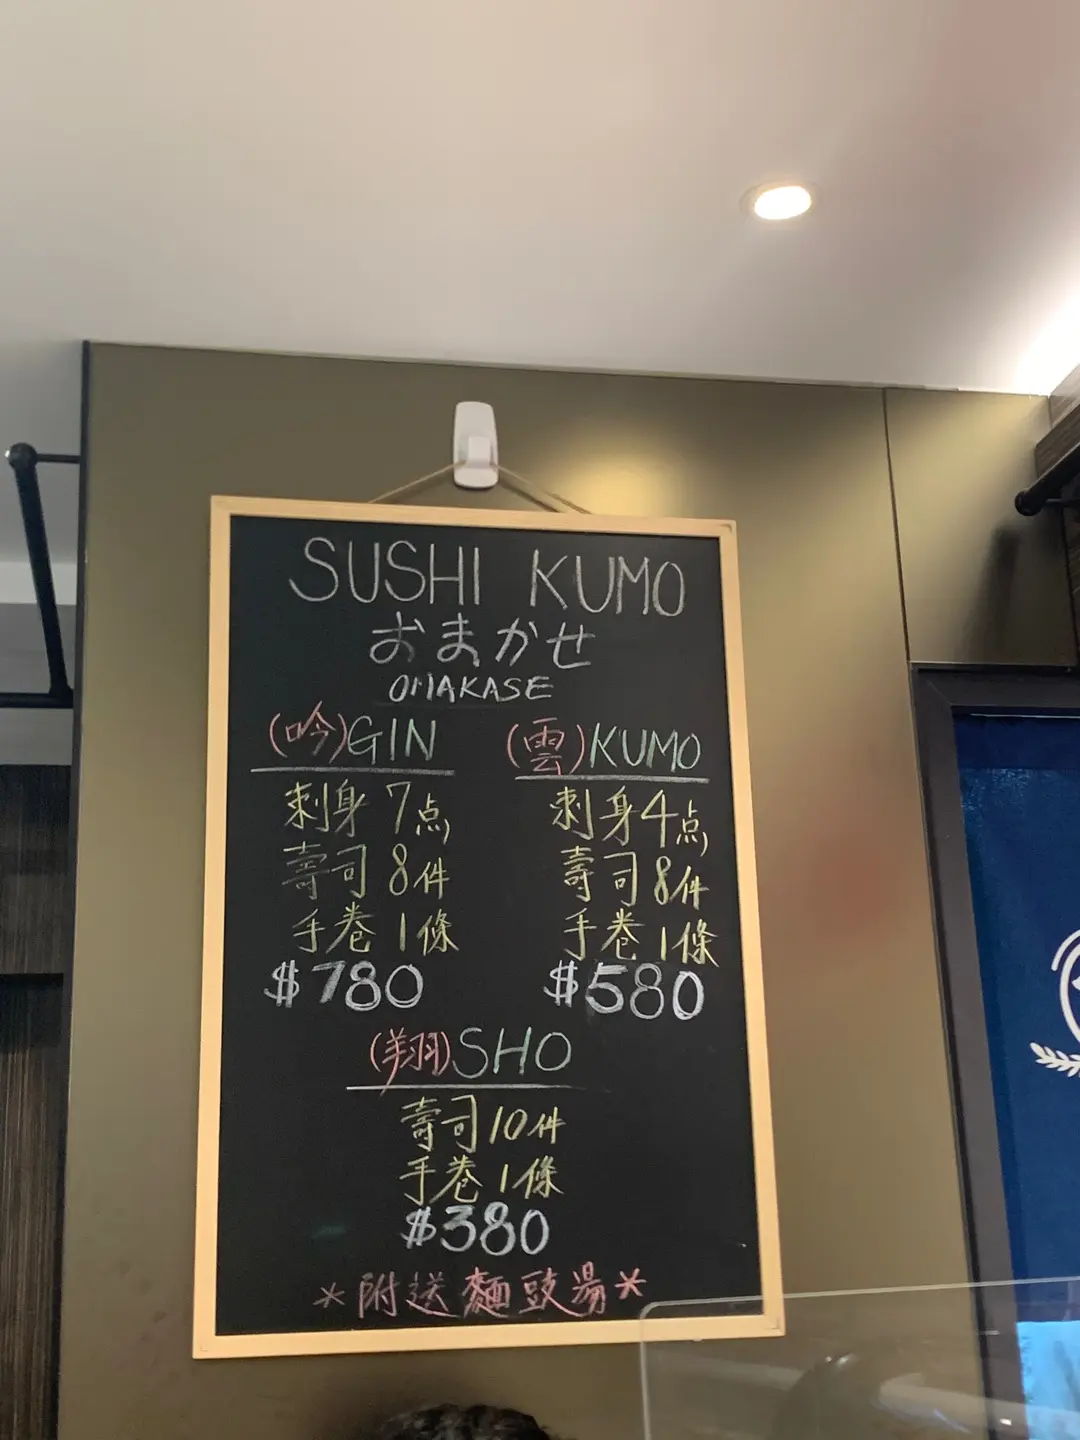 SUSHI KUMO
おまかせ
OMAKASE
(吟)GIN
刺身 7点
壽司 8件
手卷 1條
$780
(雲)KUMO
刺身 4点
壽司 8件
手卷 1條
$580
(翔)SHO
壽司 10件
手卷 1條
$380
*附送麵豉湯*